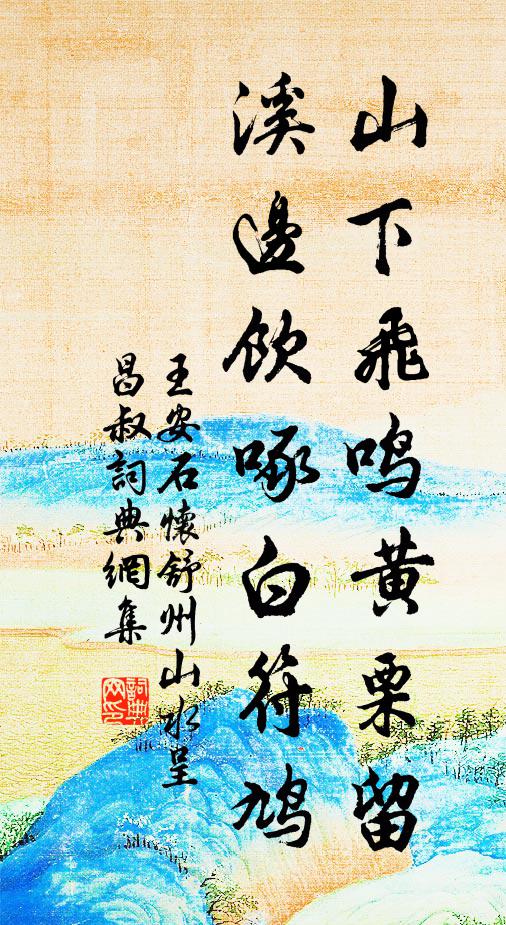 山下飛鳴黄栗留
溪邊飲啄白符鳩
王安石懷舒州山水呈
昌叔詞典網集
詞典網印